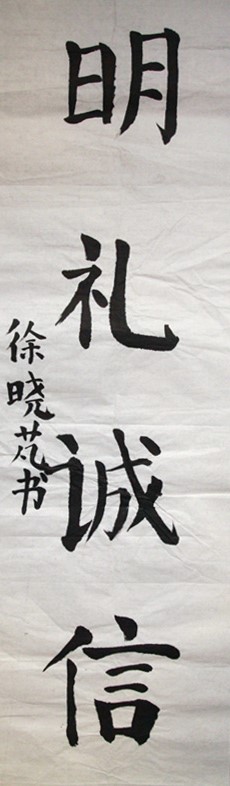 明礼诚信
徐晓芃书